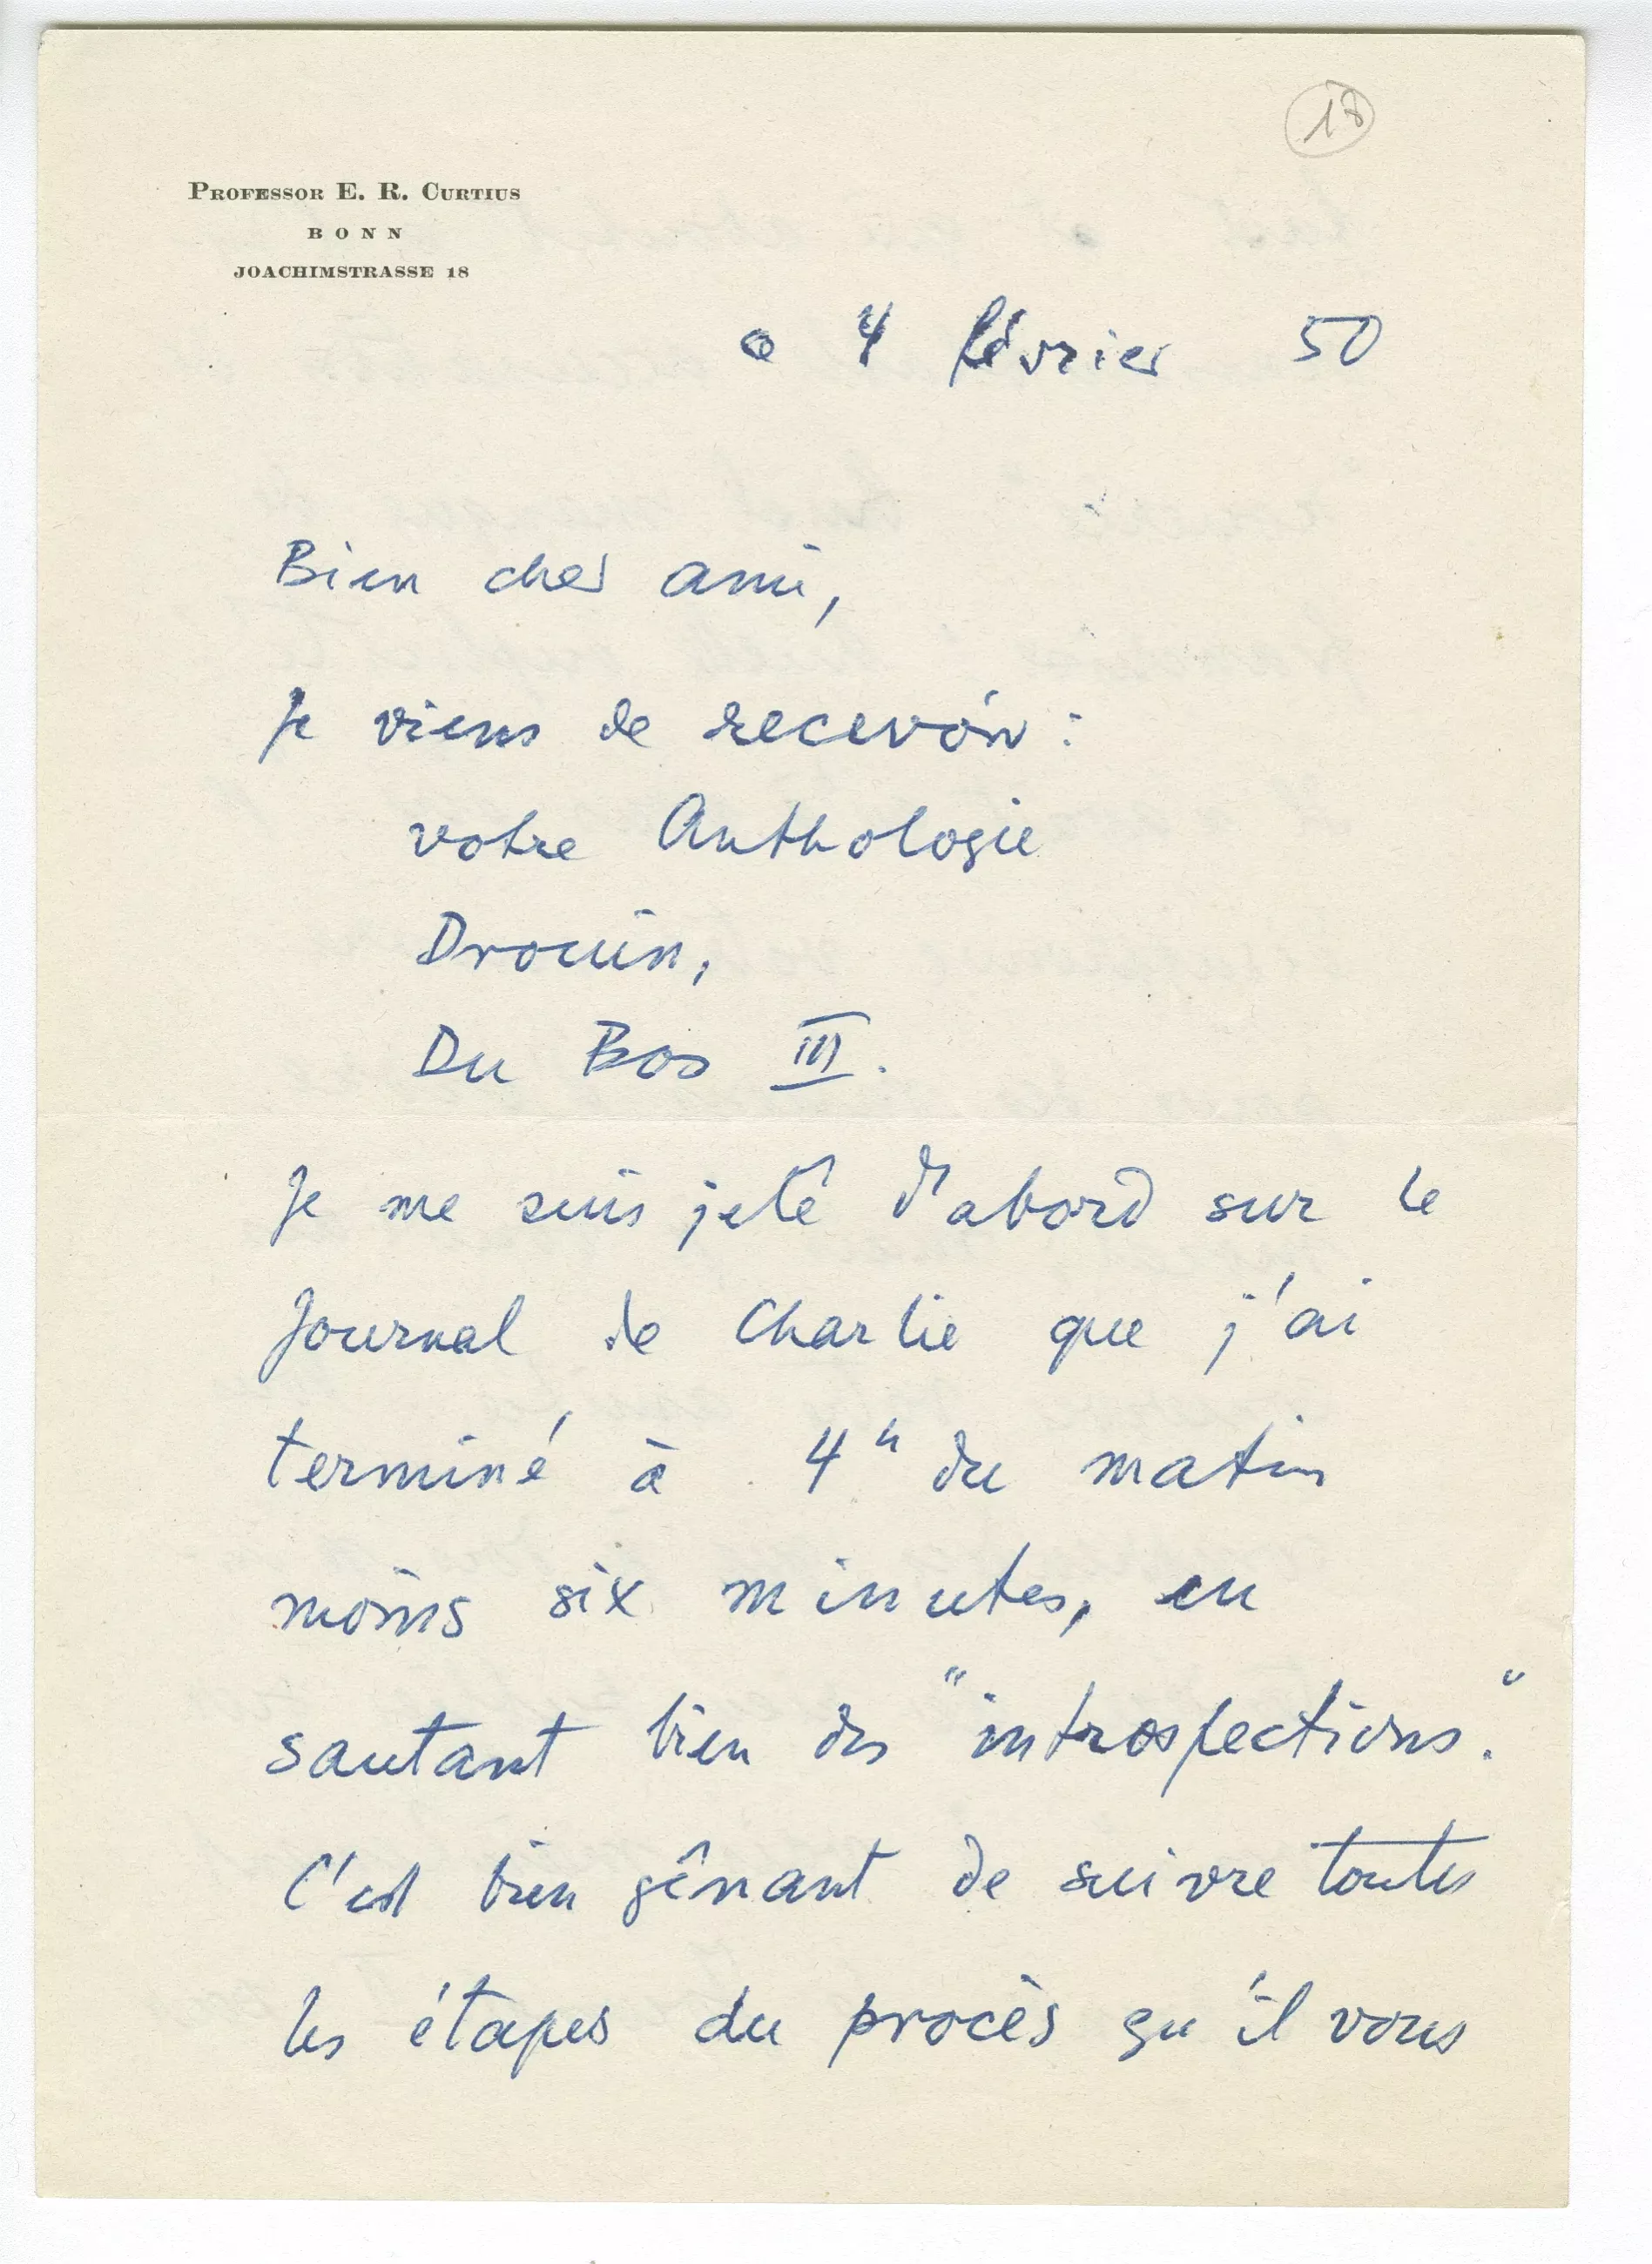 18
PROFESSOR E. R. CURTIUS
BONN
JOACHIMSTRASSE 18
4 février 50
Bien cher ami,
Je viens de recevoir :
votre Anthologie
Drouin,
Du Bos III.
Je me suis jeté d'abord sur le
Journal de Charlie que j'ai
terminé à 4h du matin
moins six minutes, en
sautant bien des "introspections."
C'est bien gênant de suivre toutes
les étapes du procès qu'il vous